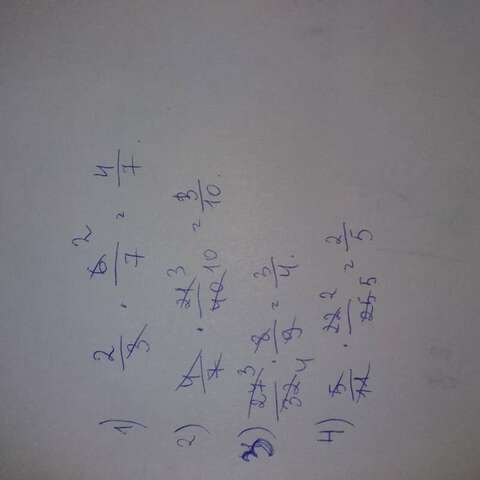 1) 2/3 · 6 2/7 = 4/7.
2) 4/7 · 21 3/40 10 = 3/10.
3) 27 3/32 4 · 8/9 = 3/4.
4) 5/11 · 22 2/25 5 = 2/5